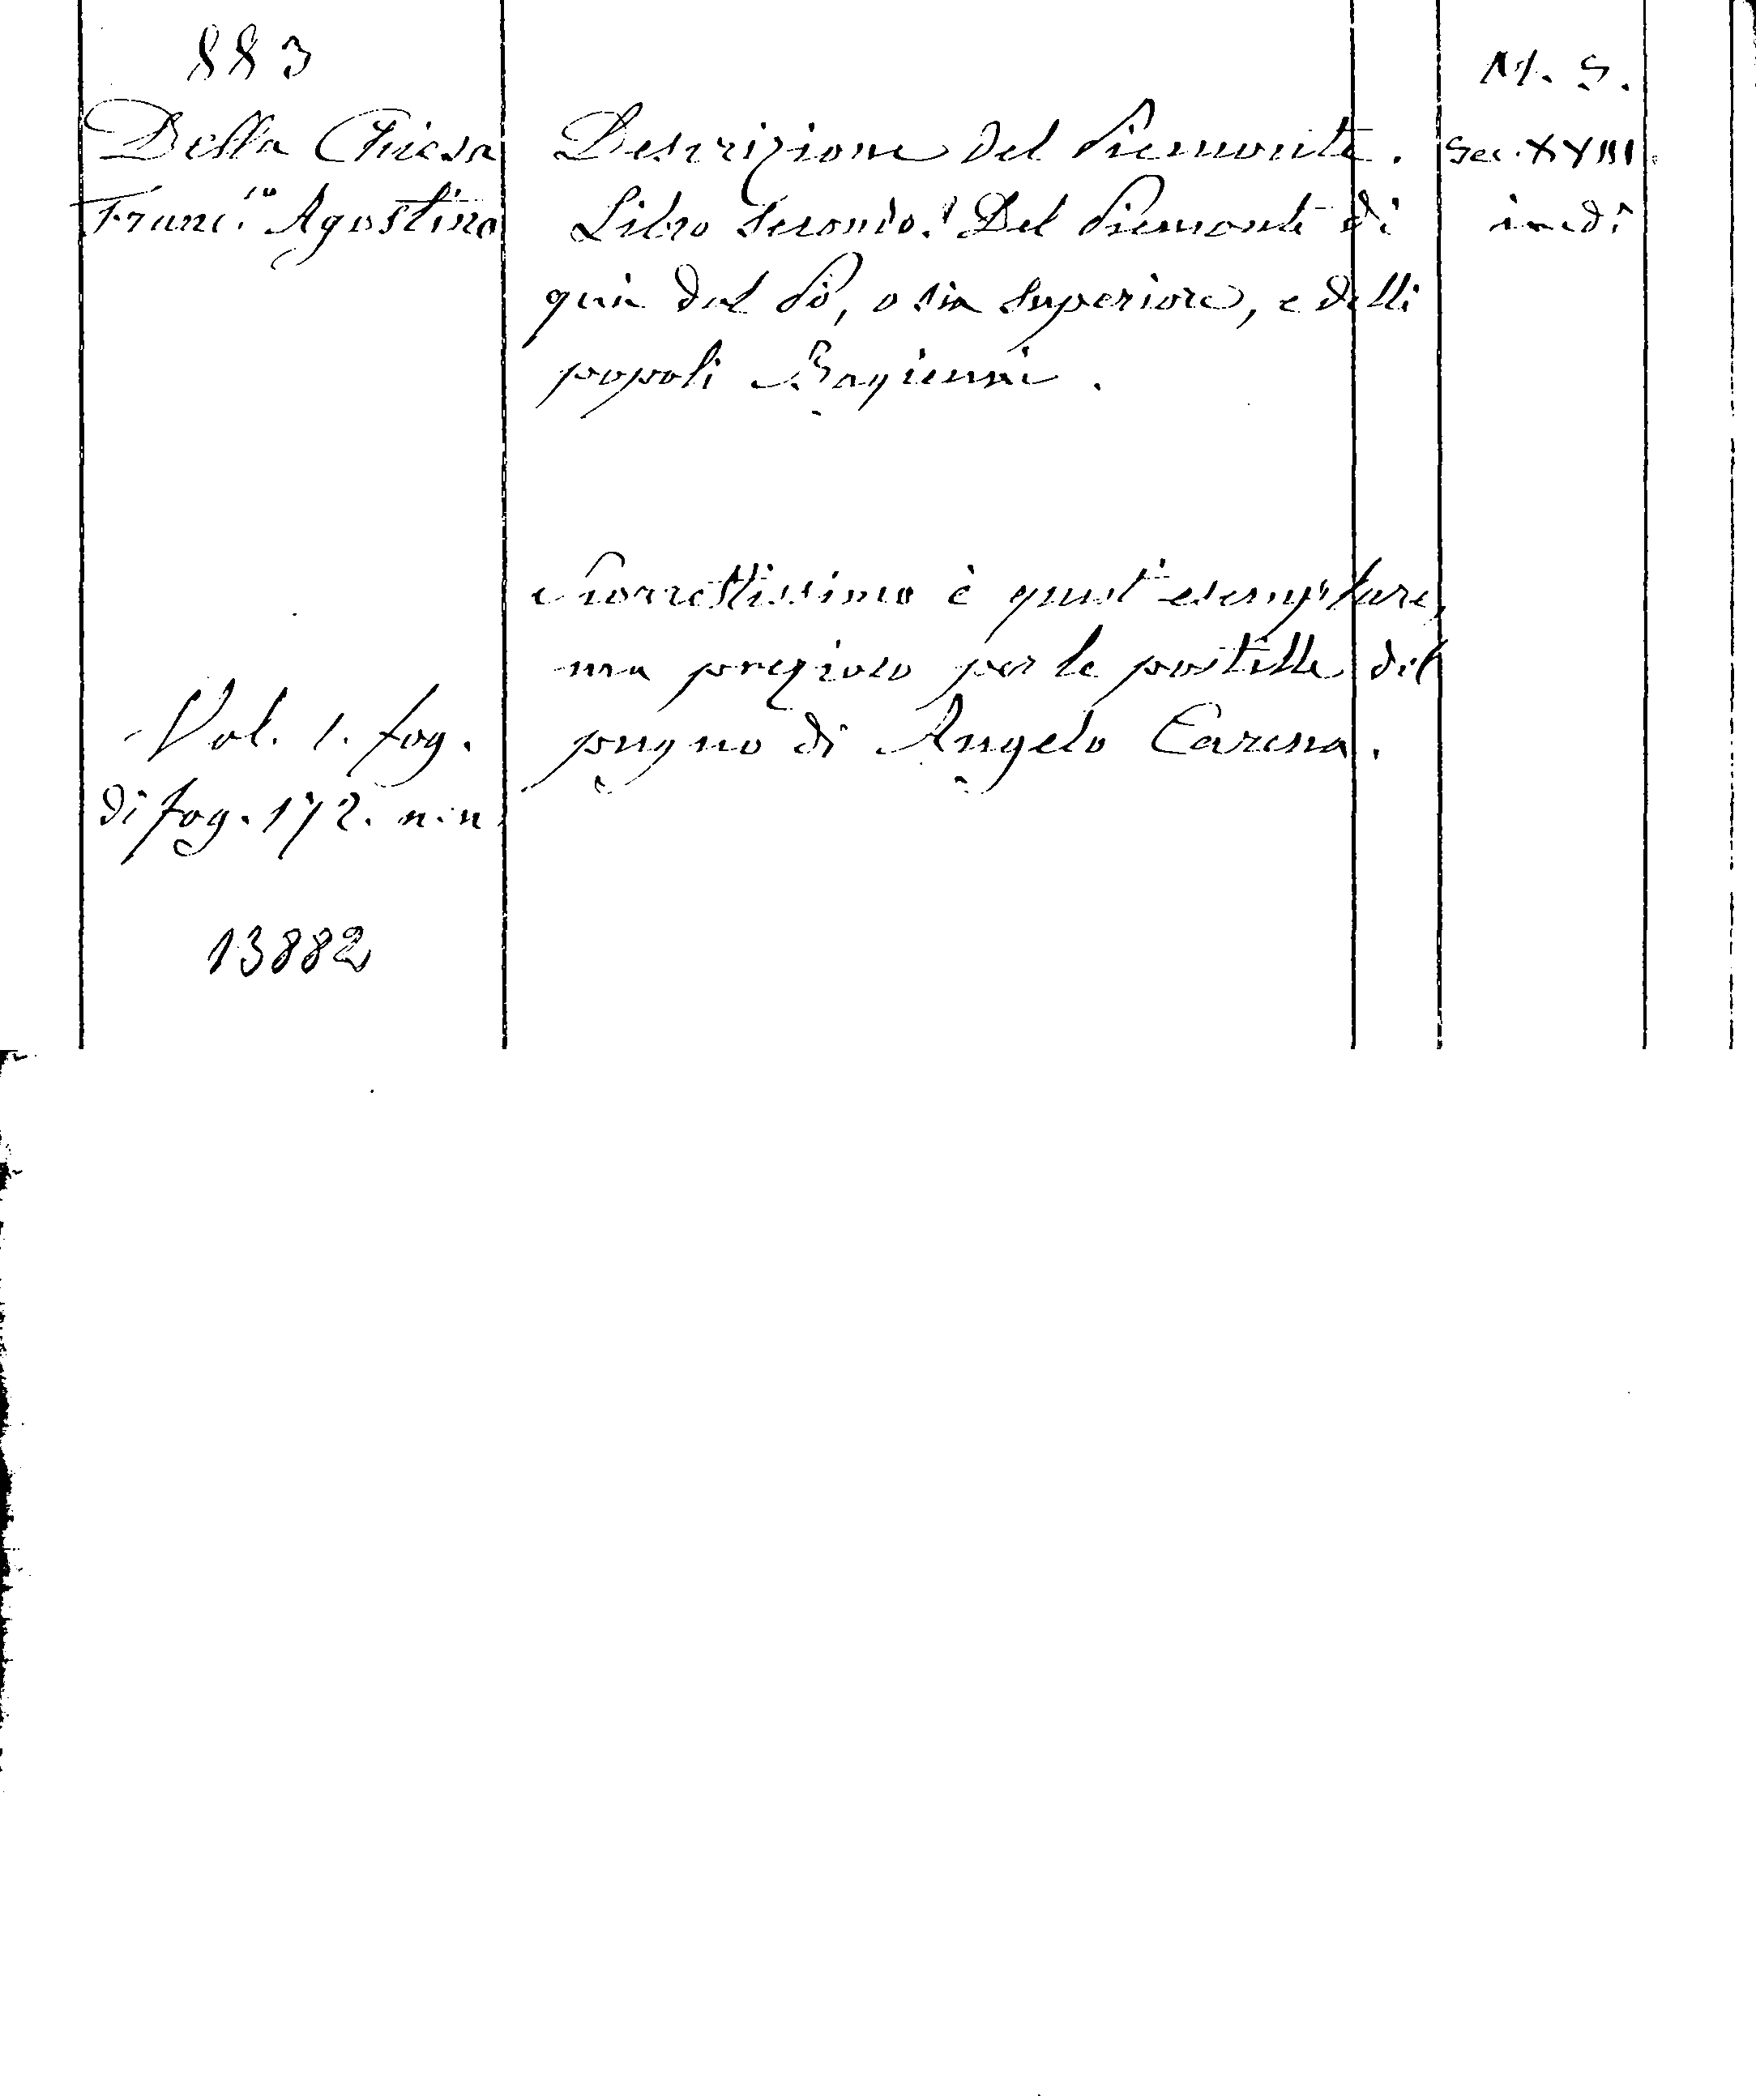 883
Della Chiesa
Franc.co Agostino
Vol. 1. fog.
di fog. 172. n. n.
13882
Descrizione del Piemonte.
Libro secondo. Del Piemonte di
quà dal Pò, o sia superiore, e delli
popoli Bagienni.
Scorrettissimo è quest'esemplare,
ma prezioso per le postille del
pugno di Angelo Carena.
M. S.
Sec. XVIII.
inedi